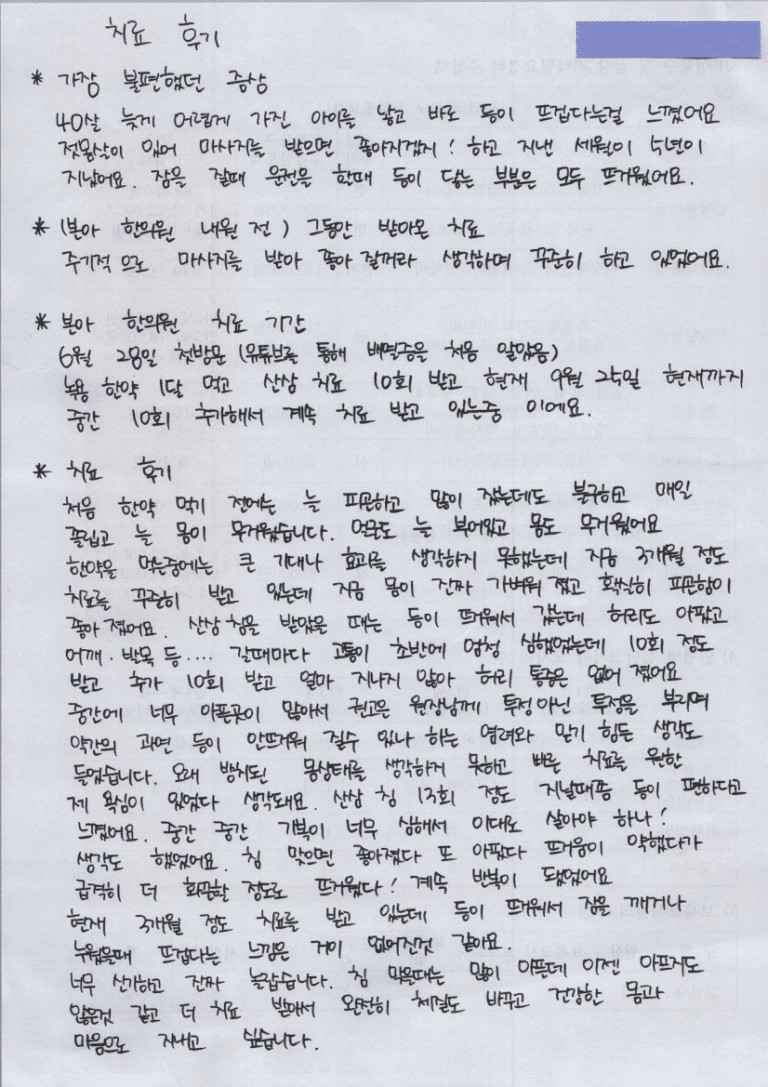 치료 후기
* 가장 불편했던 증상
40살 늦게 어렵게 가진 아이를 낳고 바로 등이 뜨겁다는걸 느꼈어요
젖몸살이 있어 마사지를 받으면 좋아지겠지! 하고 지낸 세월이 4년이
지났어요. 잠을 잘때 운전을 할때 등이 닿는 부분은 모두 뜨거웠어요.
* (본아 한의원 내원 전) 그동안 받아온 치료
주기적 으로 마사지를 받아 좋아 질꺼라 생각하며 꾸준히 하고 있었어요.
* 본아 한의원 치료 기간
6월 28일 첫방문 (유튜브를 통해 배열증을 처음 알았음)
녹용 한약 1달 먹고 산삼 치료 10회 받고 현재 9월 25일 현재까지
중간 10회 추가해서 계속 치료 받고 있는중 이에요.
* 치료 후기
처음 한약 먹기 전에는 늘 피곤하고 많이 잤는데도 불구하고 매일
졸립고 늘 몸이 무거웠습니다. 얼굴도 늘 부어있고 몸도 무거웠어요
한약을 먹는중에는 큰 기대나 효과를 생각하지 못했는데 지금 3개월 정도
치료를 꾸준히 받고 있는데 지금 몸이 진짜 가벼워 졌고 확실히 피곤함이
좋아 졌어요. 산삼침을 받았을 때는 등이 뜨워서 갔는데 허리도 아팠고
어깨. 발목 등.... 갈때마다 고통이 초반에 엄청 심했었는데 10회 정도
받고 추가 10회 받고 얼마 지나지 않아 허리 통증은 없어 졌어요
중간에 너무 아픈곳이 많아서 권고은 원장님께 투정아닌 투정을 부리며
약간의 과연 등이 안뜨거워 질수 있나 하는 염려와 믿기 힘든 생각도
들었습니다. 오래 방치된 몸상태를 생각하지 못하고 빠른 치료를 원한
제 욕심이 있었다 생각돼요. 산삼 침 13회 정도 지날때쯤 등이 편하다고
느꼈어요. 중간 중간 기복이 너무 심해서 이대로 살아야 하나!
생각도 했었어요. 침 맞으면 좋아졌다 또 아팠다 뜨거움이 약했다가
급격히 더 화끈할 정도로 뜨거웠다! 계속 반복이 됐었어요
현재 3개월 정도 치료를 받고 있는데 등이 뜨거워서 잠을 깨거나
누웠을때 뜨겁다는 느낌은 거이 없어진것 같아요.
너무 신기하고 진짜 놀랍습니다. 침 맞을때는 많이 아픈데 이젠 아프지도
않은것 같고 더 치료 받아서 완전히 체질도 바꾸고 건강한 몸과
마음으로 지내고 싶습니다.